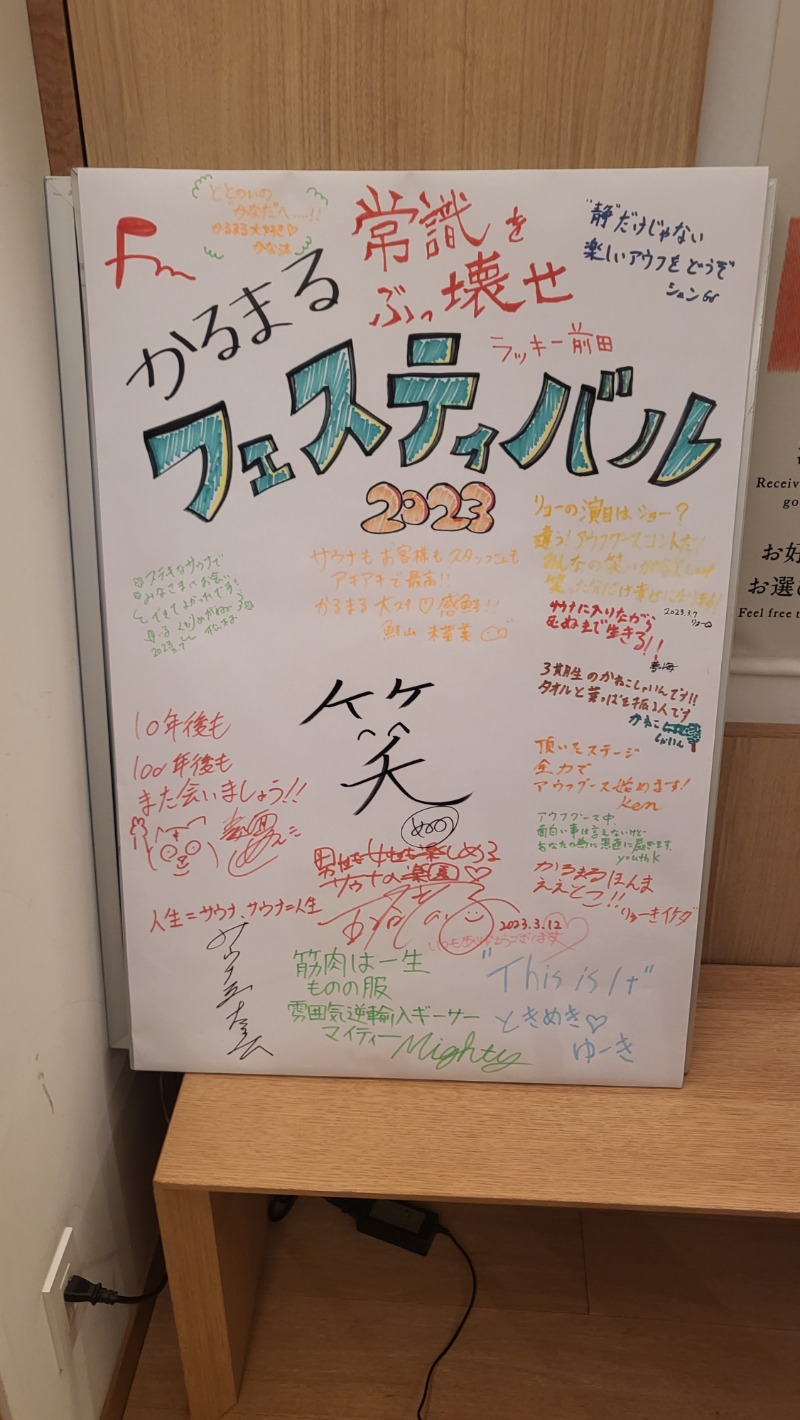 ととのいの
かなだへ....!!
かるまる大好き♡
常識を
ぶっ壊せ
ラッキー前田
"静"だけじゃない
楽しいアウフをどうぞ
シュンGr
かるまる
フェスティバル
2023
ステキなサウナで
みなさまにお会い
できてよかったです!
2023
3.7
サウナもお客様もスタッフさんも
アキアキで最高!!
かるまる大スキ♡感鮭!!
鮭山
リョーの演目はショー?
違う!アウフグースコントだ!
みんなの笑いが欲しい
笑った分だけ幸せになります!
2023.3.7
サウナに入りながら
死ぬまで生きる!!
3期生のかねこしゃいんです!!
タオルと葉っぱを振る人です
かねこ
しゃいん
頂いたステージ
全力で
アウフグース始めます!
Ken
アウフグース中、
面白い事は言えないけど
あなたの為に愚直に扇ぎます。
youthk
かるまるほんま
ええとこ!!
りゅーきイケダ
笑
10年後も
100年後も
また会いましょう!!
男性も女性も楽しめる
サウナの楽園♡
2023.3.12
いつもありがとうございます
人生=サウナ、サウナ=人生
筋肉は一生
ものの服
雰囲気逆輸入ギーサー
マイティー Mighty
"This is it"
ときめき♡
ゆーき
Receiv
go
お好
お選
Feel free t